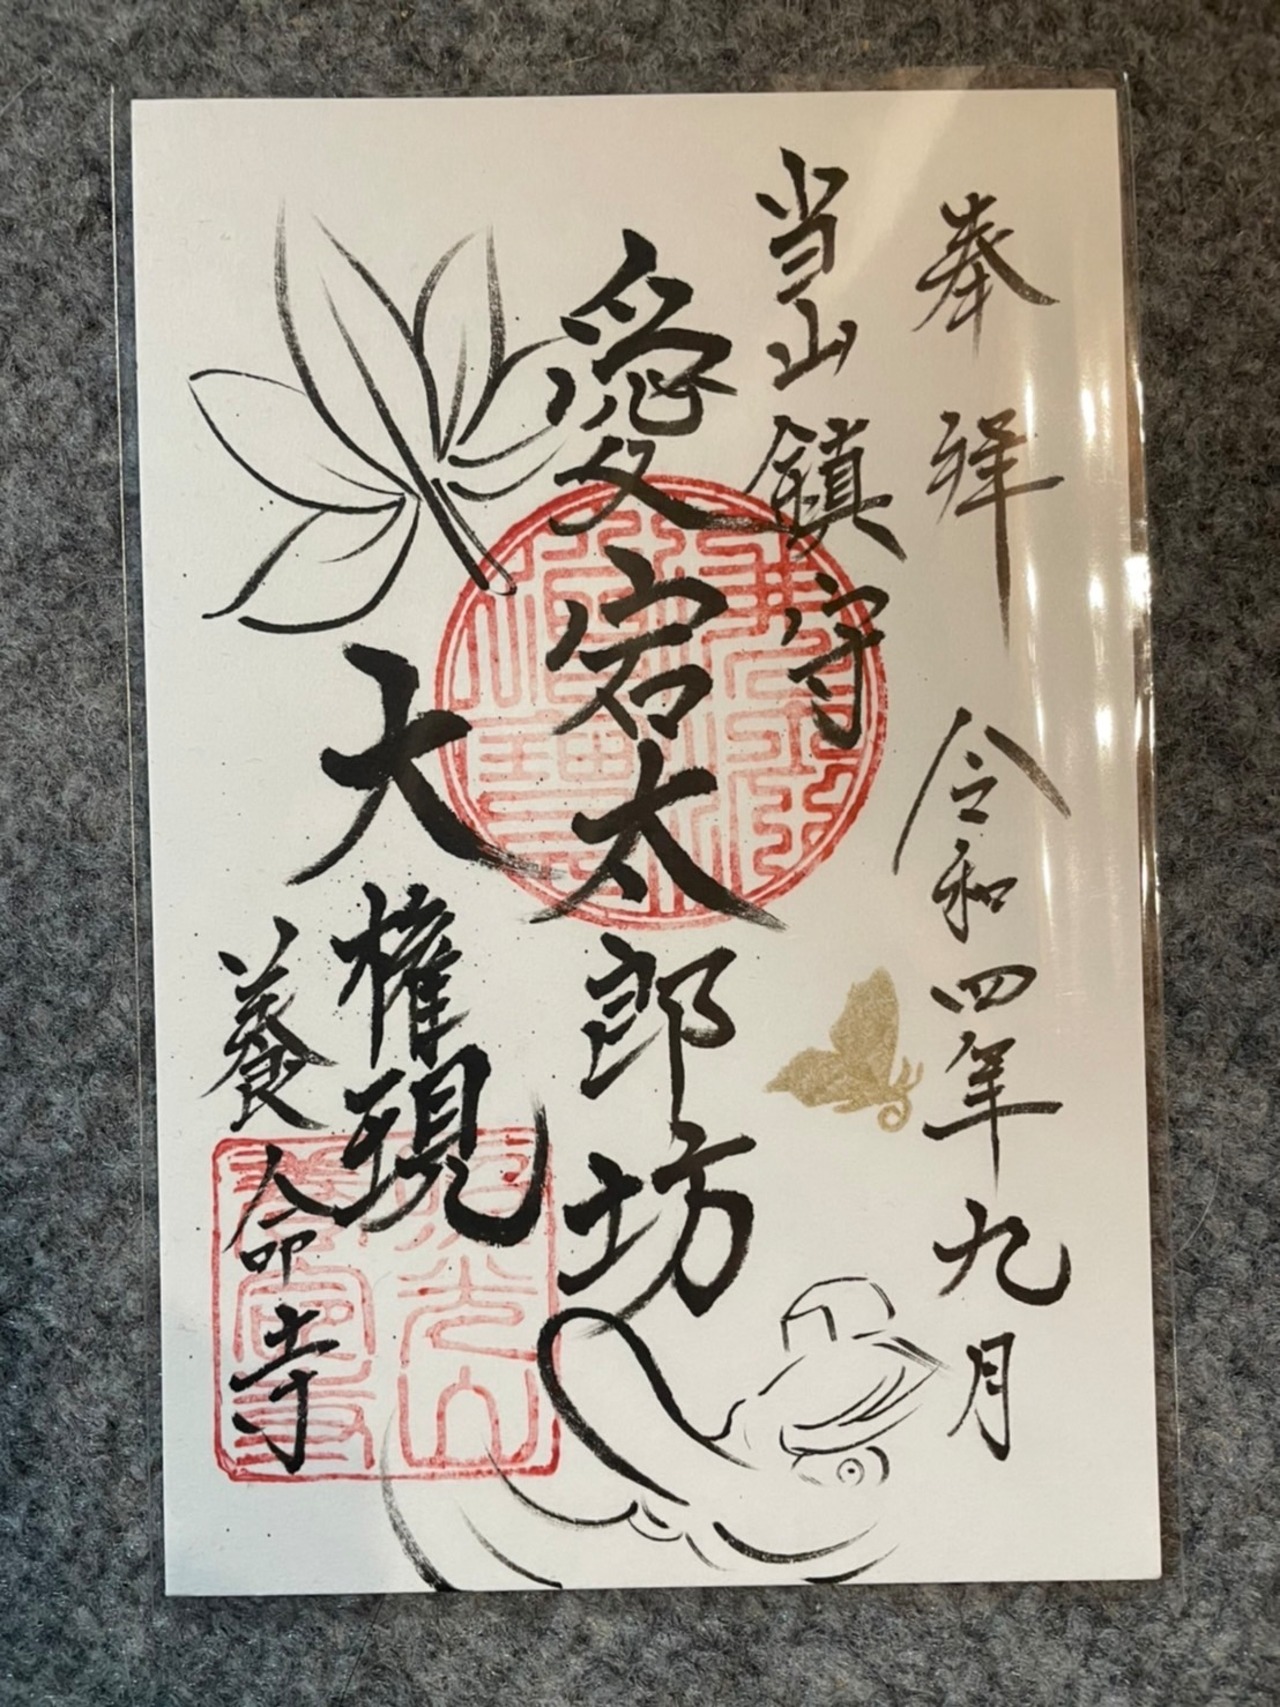 奉拝 令和四年九月
当山鎮守
愛宕太郎坊
大権現
養命寺